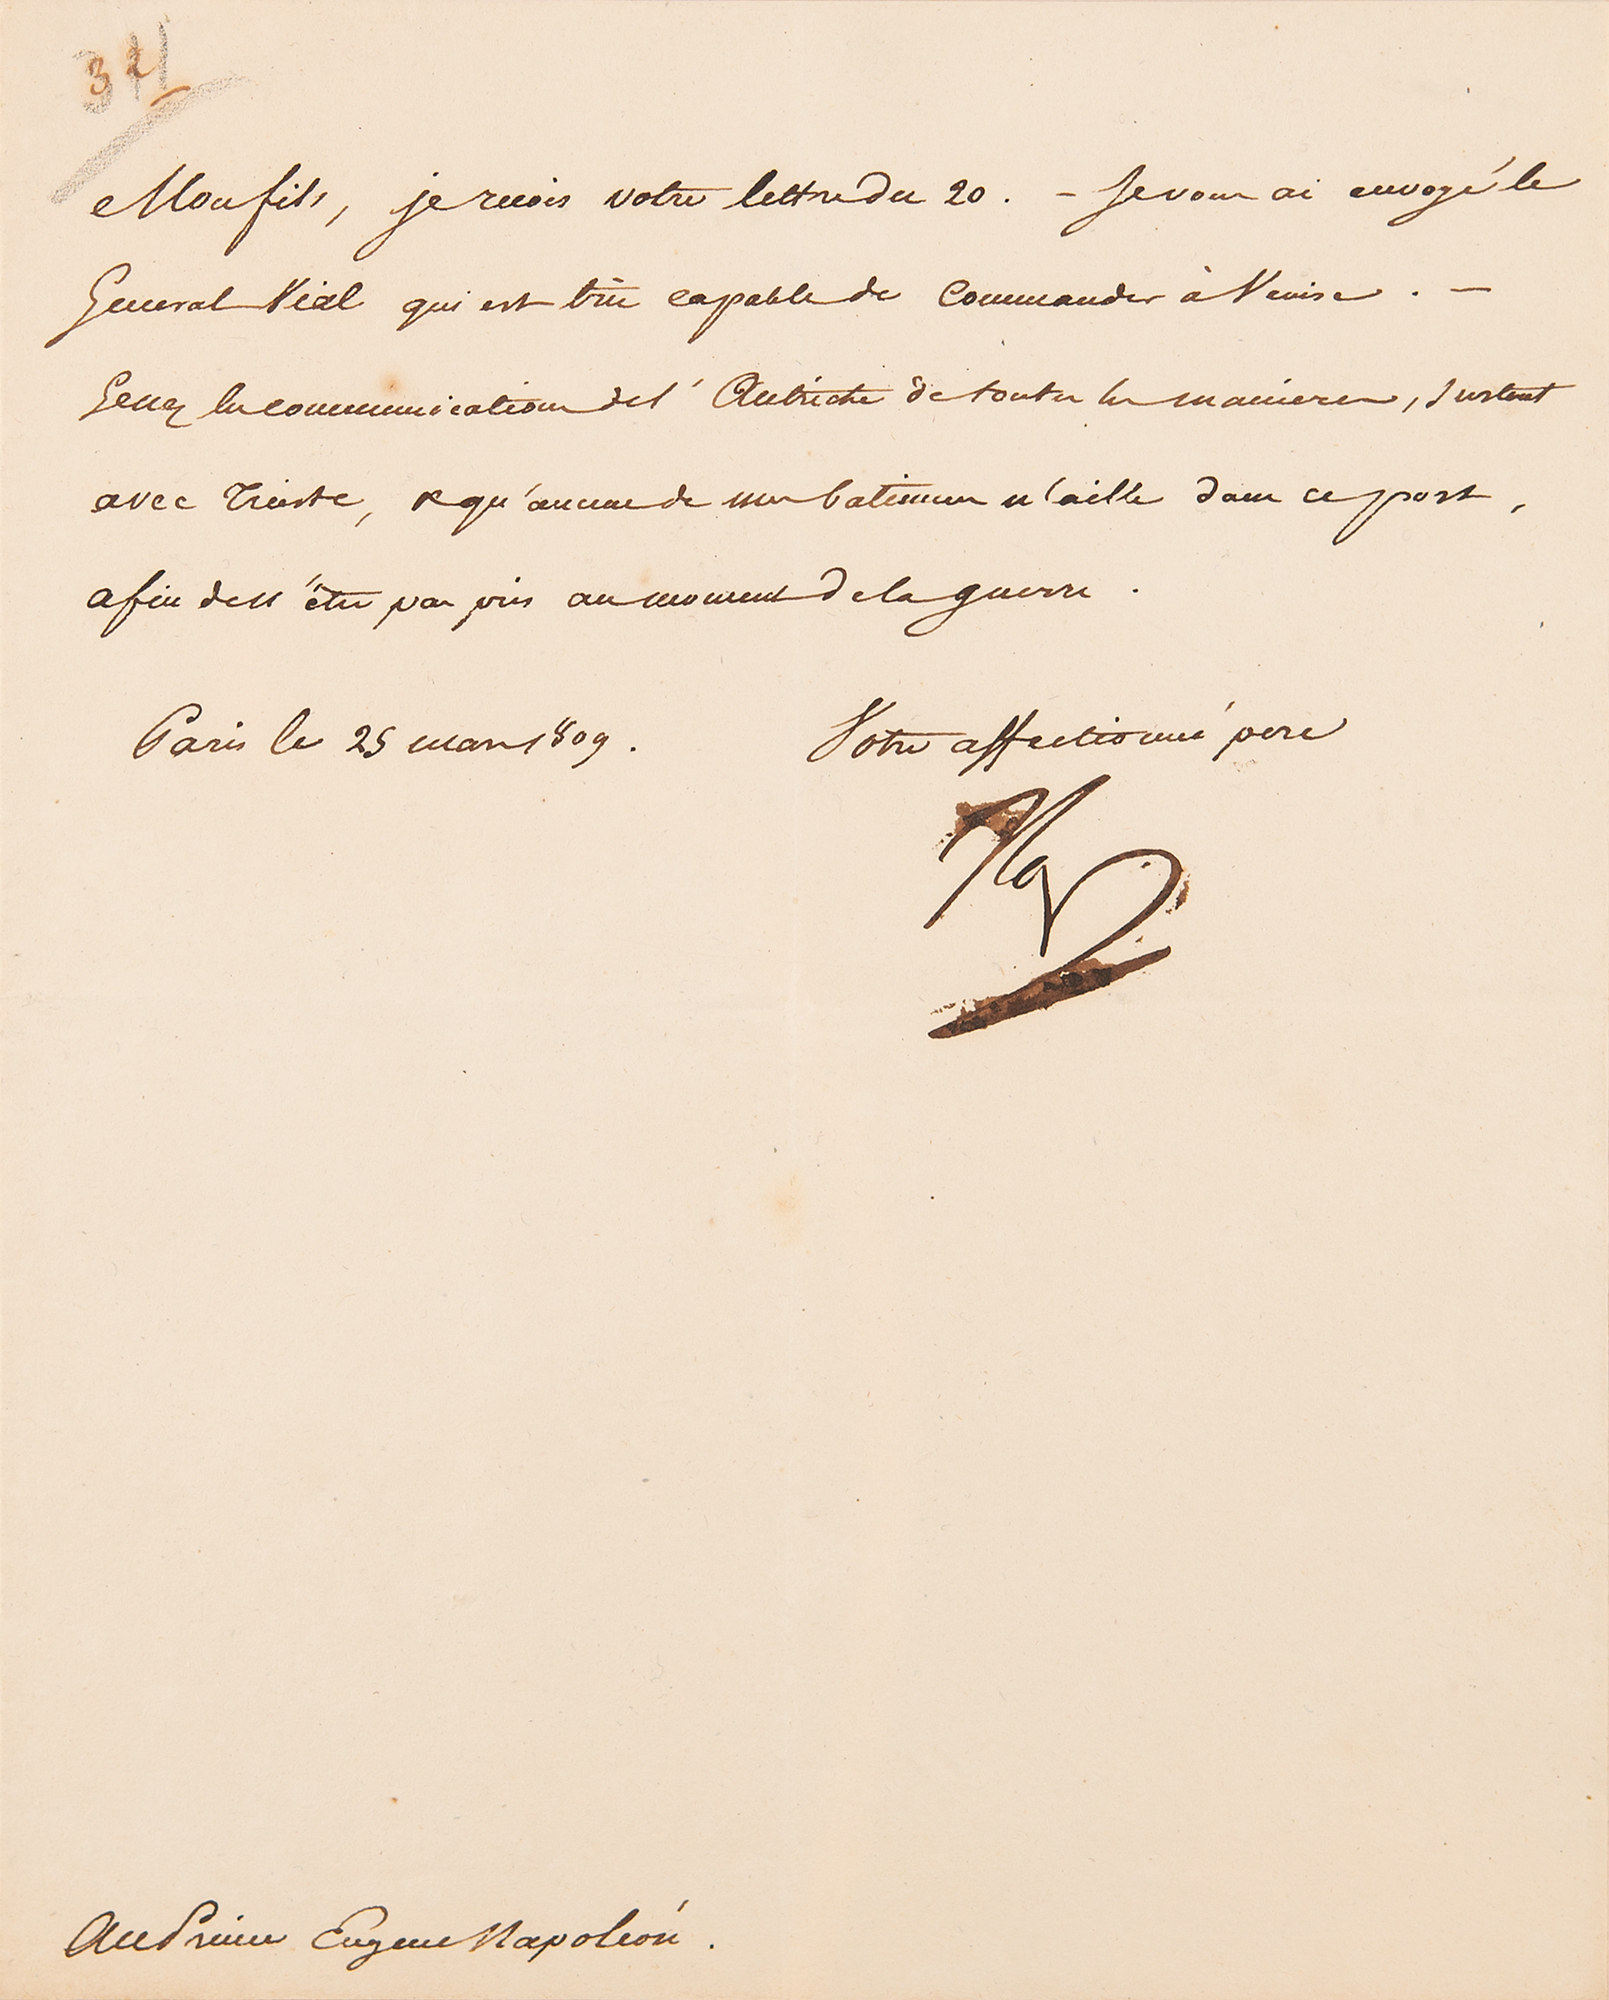 Mon fils, je reçois votre lettre du 20. – Je vous ai envoyé le
General Vial qui est très capable de commander à Venise. –
les communications de l'Autriche de toutes les manieres, surtout
avec Trieste, & qu'aucun de mes batimens n'aille dans ce port,
afin de n'être pas pris au moment de la guerre.
Paris le 25 mars 1809.
Votre affectionné pere
Nap
Au Prince Eugene Napoléon.